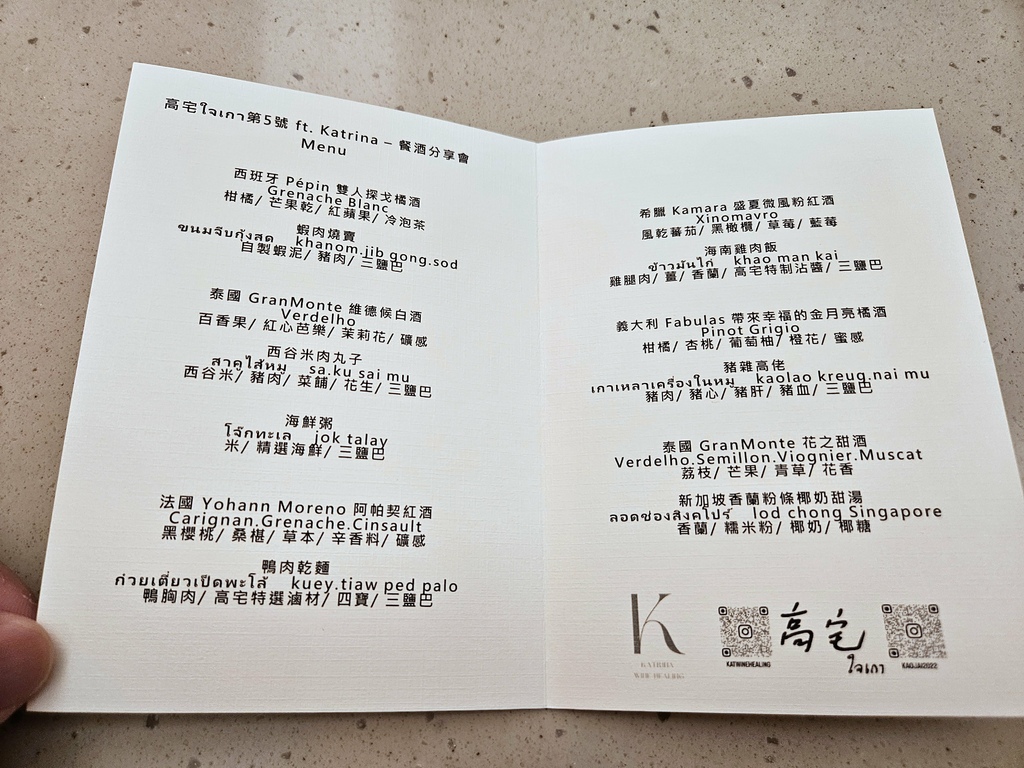 高宅ใจเกา第5號 ft. Katrina – 餐酒分享會
Menu
西班牙 Pépin 雙人探戈橘酒
Grenache Blanc
柑橘/ 芒果乾/ 紅蘋果/ 冷泡茶
蝦肉燒賣
ขนมจีบกุ้งสด khanom.jib gong.sod
自製蝦泥/ 豬肉/ 三鹽巴
泰國 GranMonte 維德候白酒
Verdelho
百香果/ 紅心芭樂/ 茉莉花/ 礦感
西谷米肉丸子
สาคูไส้หมู sa.ku sai mu
西谷米/ 豬肉/ 菜餔/ 花生/ 三鹽巴
海鮮粥
โจ๊กทะเล jok talay
米/ 精選海鮮/ 三鹽巴
法國 Yohann Moreno 阿帕契紅酒
Carignan.Grenache.Cinsault
黑櫻桃/ 桑椹/ 草本/ 辛香料/ 礦感
鴨肉乾麵
ก๋วยเตี๋ยวเป็ดพะโล้ kuey.tiaw ped palo
鴨胸肉/ 高宅特選滷材/ 四寶/ 三鹽巴
希臘 Kamara 盛夏微風粉紅酒
Xinomavro
風乾蕃茄/ 黑橄欖/ 草莓/ 藍莓
海南雞肉飯
ข้าวมันไก่ khao man kai
雞腿肉/ 薑/ 香蘭/ 高宅特制沾醬/ 三鹽巴
義大利 Fabulas 帶來幸福的金月亮橘酒
Pinot Grigio
柑橘/ 杏桃/ 葡萄柚/ 橙花/ 蜜感
豬雜高佬
เกาเหลาเครื่องในหมู kaolao kreug.nai mu
豬肉/ 豬心/ 豬肝/ 豬血/ 三鹽巴
泰國 GranMonte 花之甜酒
Verdelho.Semillon.Viognier.Muscat
荔枝/ 芒果/ 青草/ 花香
新加坡香蘭粉條椰奶甜湯
ลอดช่องสิงคโปร์ lod chong Singapore
香蘭/ 糯米粉/ 椰奶/ 椰糖
K
KATRINA
WINE HEALING
KATWINEHEALING
高宅
ใจเกา
KAOJAI2022